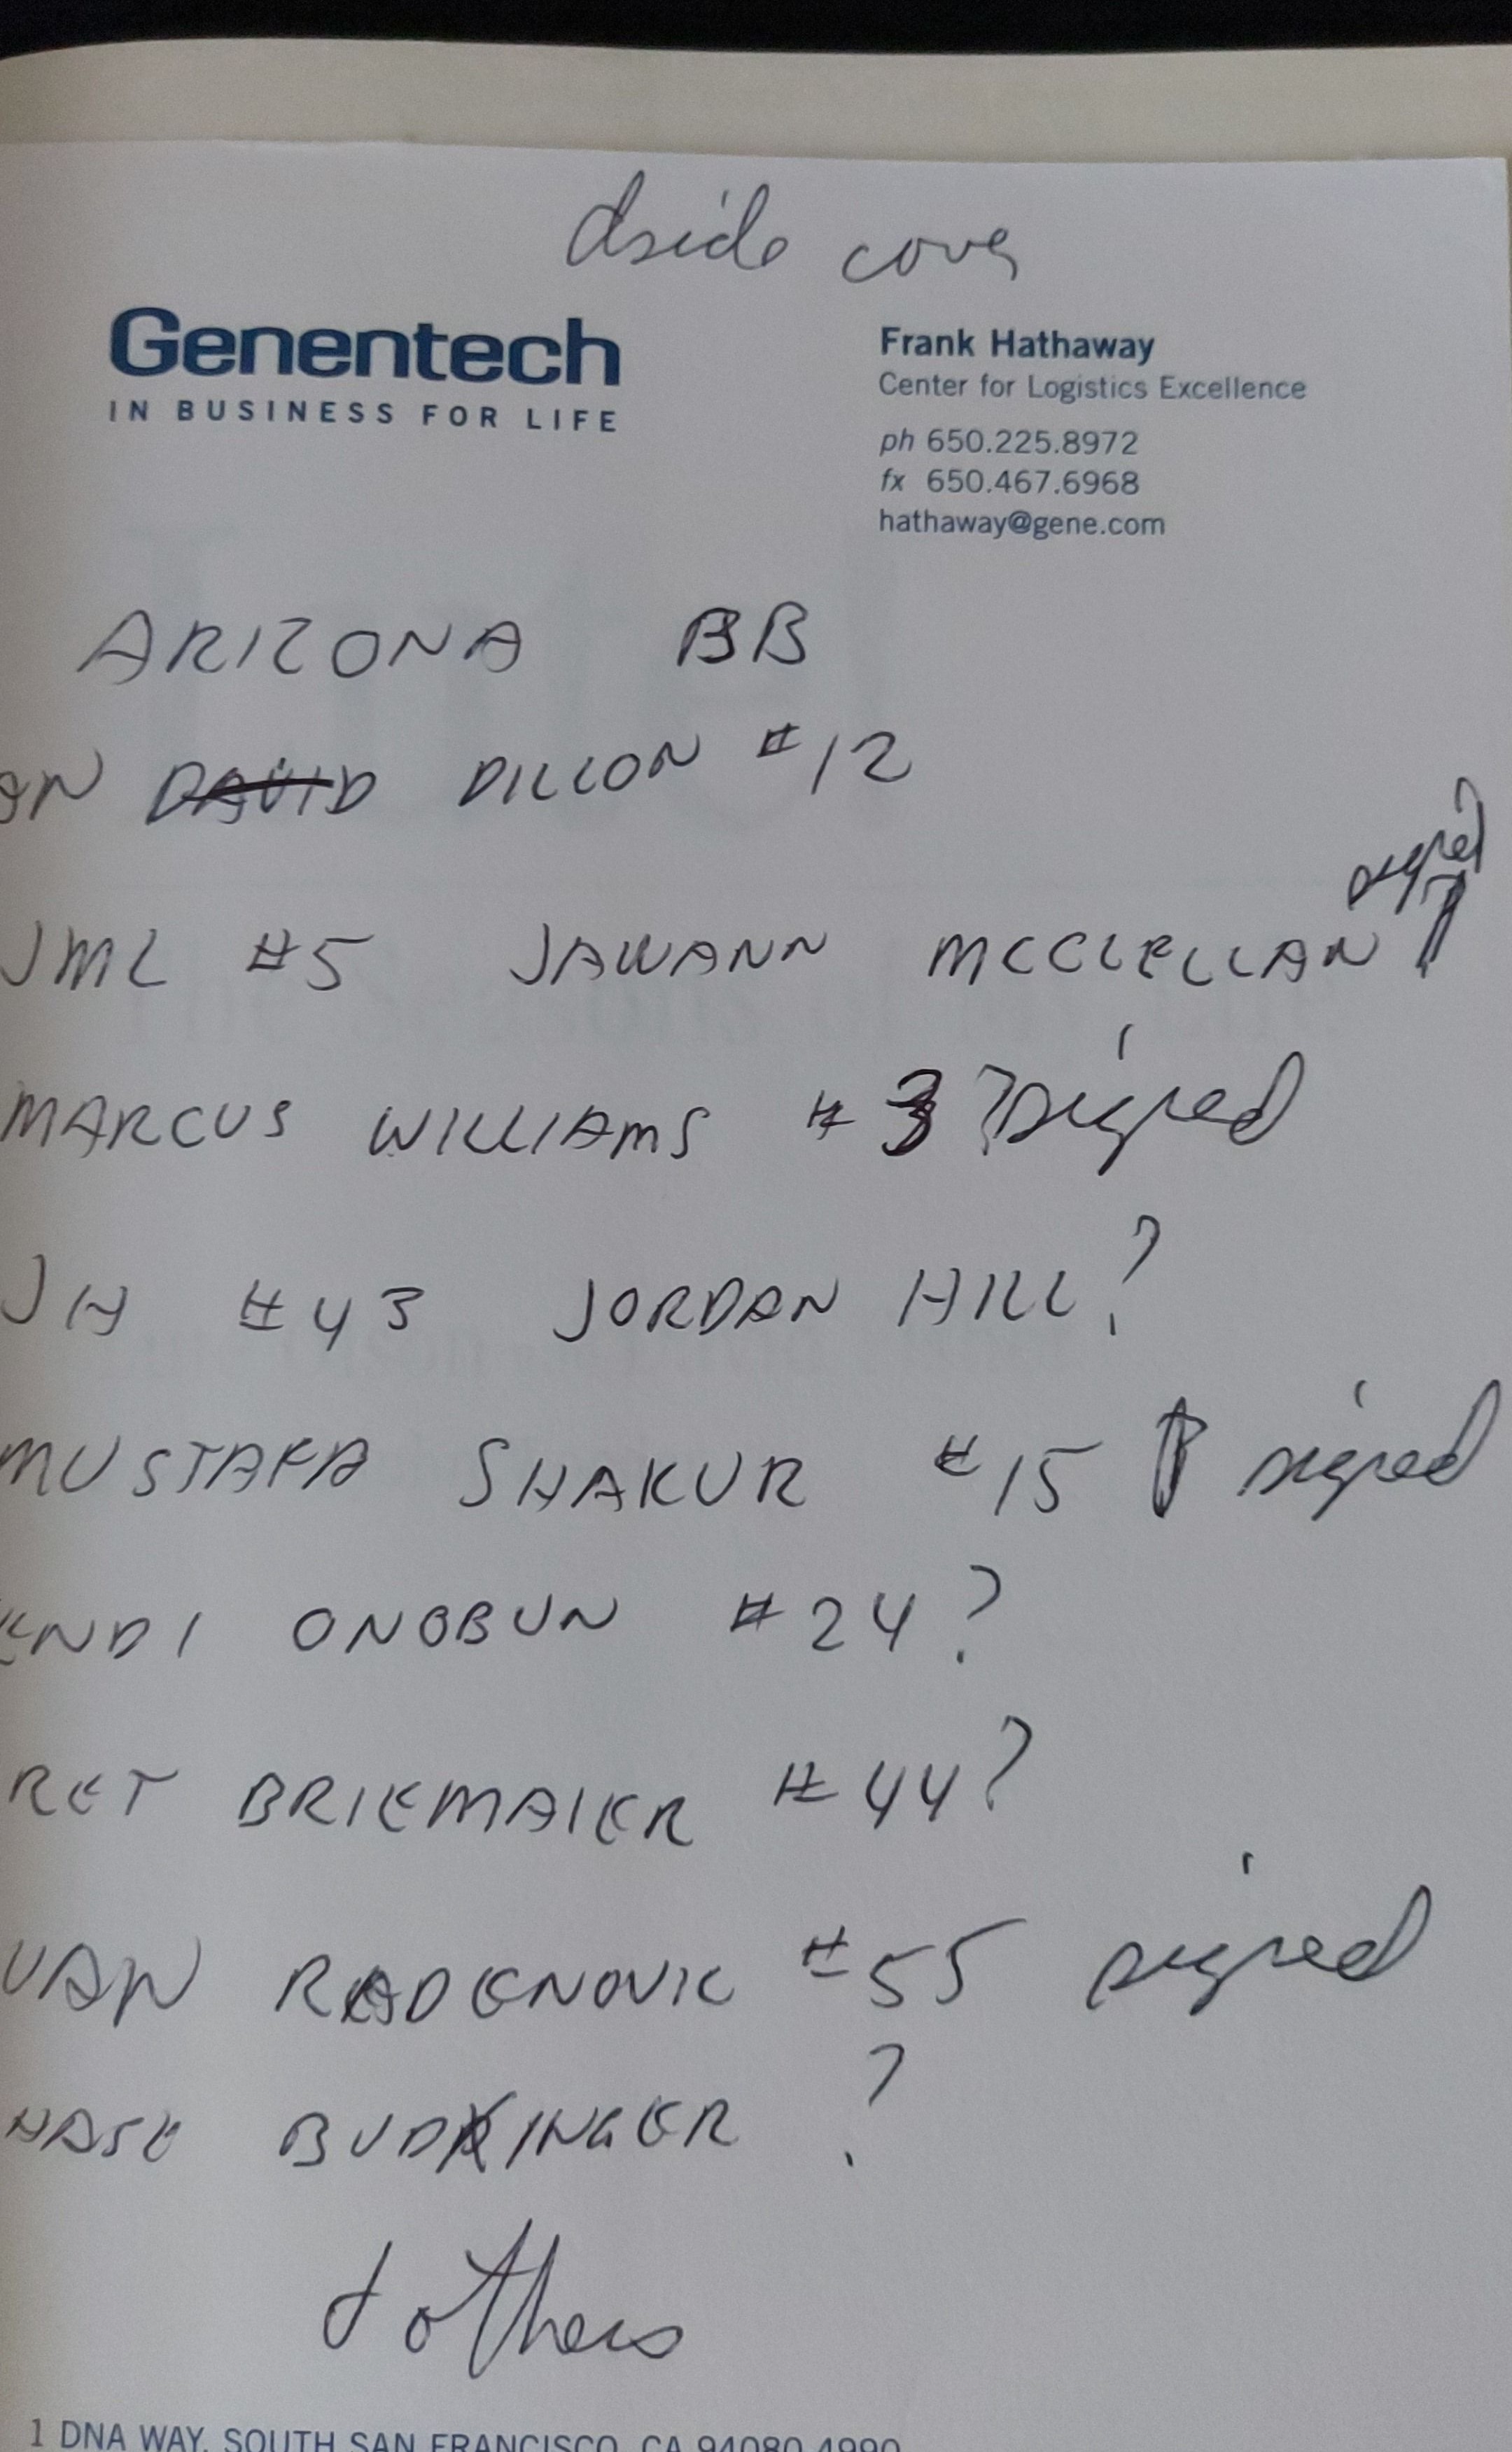 dside cover
Genentech
IN BUSINESS FOR LIFE
Frank Hathaway
Center for Logistics Excellence
ph 650.225.8972
fx 650.467.6968
hathaway@gene.com
ARIZONA BB
AN DAVID DILLON #12
signed
JML #5 JAWANN MCCLELLAN
MARCUS WILLIAMS #3 ? signed
JH #43 JORDAN HILL?
MUSTAFA SHAKUR #15 signed
ENDI ONOBUN #24?
RET BRIEMAIER #44?
VAN RADENOVIC #55 signed
HASE BUDINGER ?
& others
1 DNA WAY, SOUTH SAN FRANCISCO, CA 94080-4990